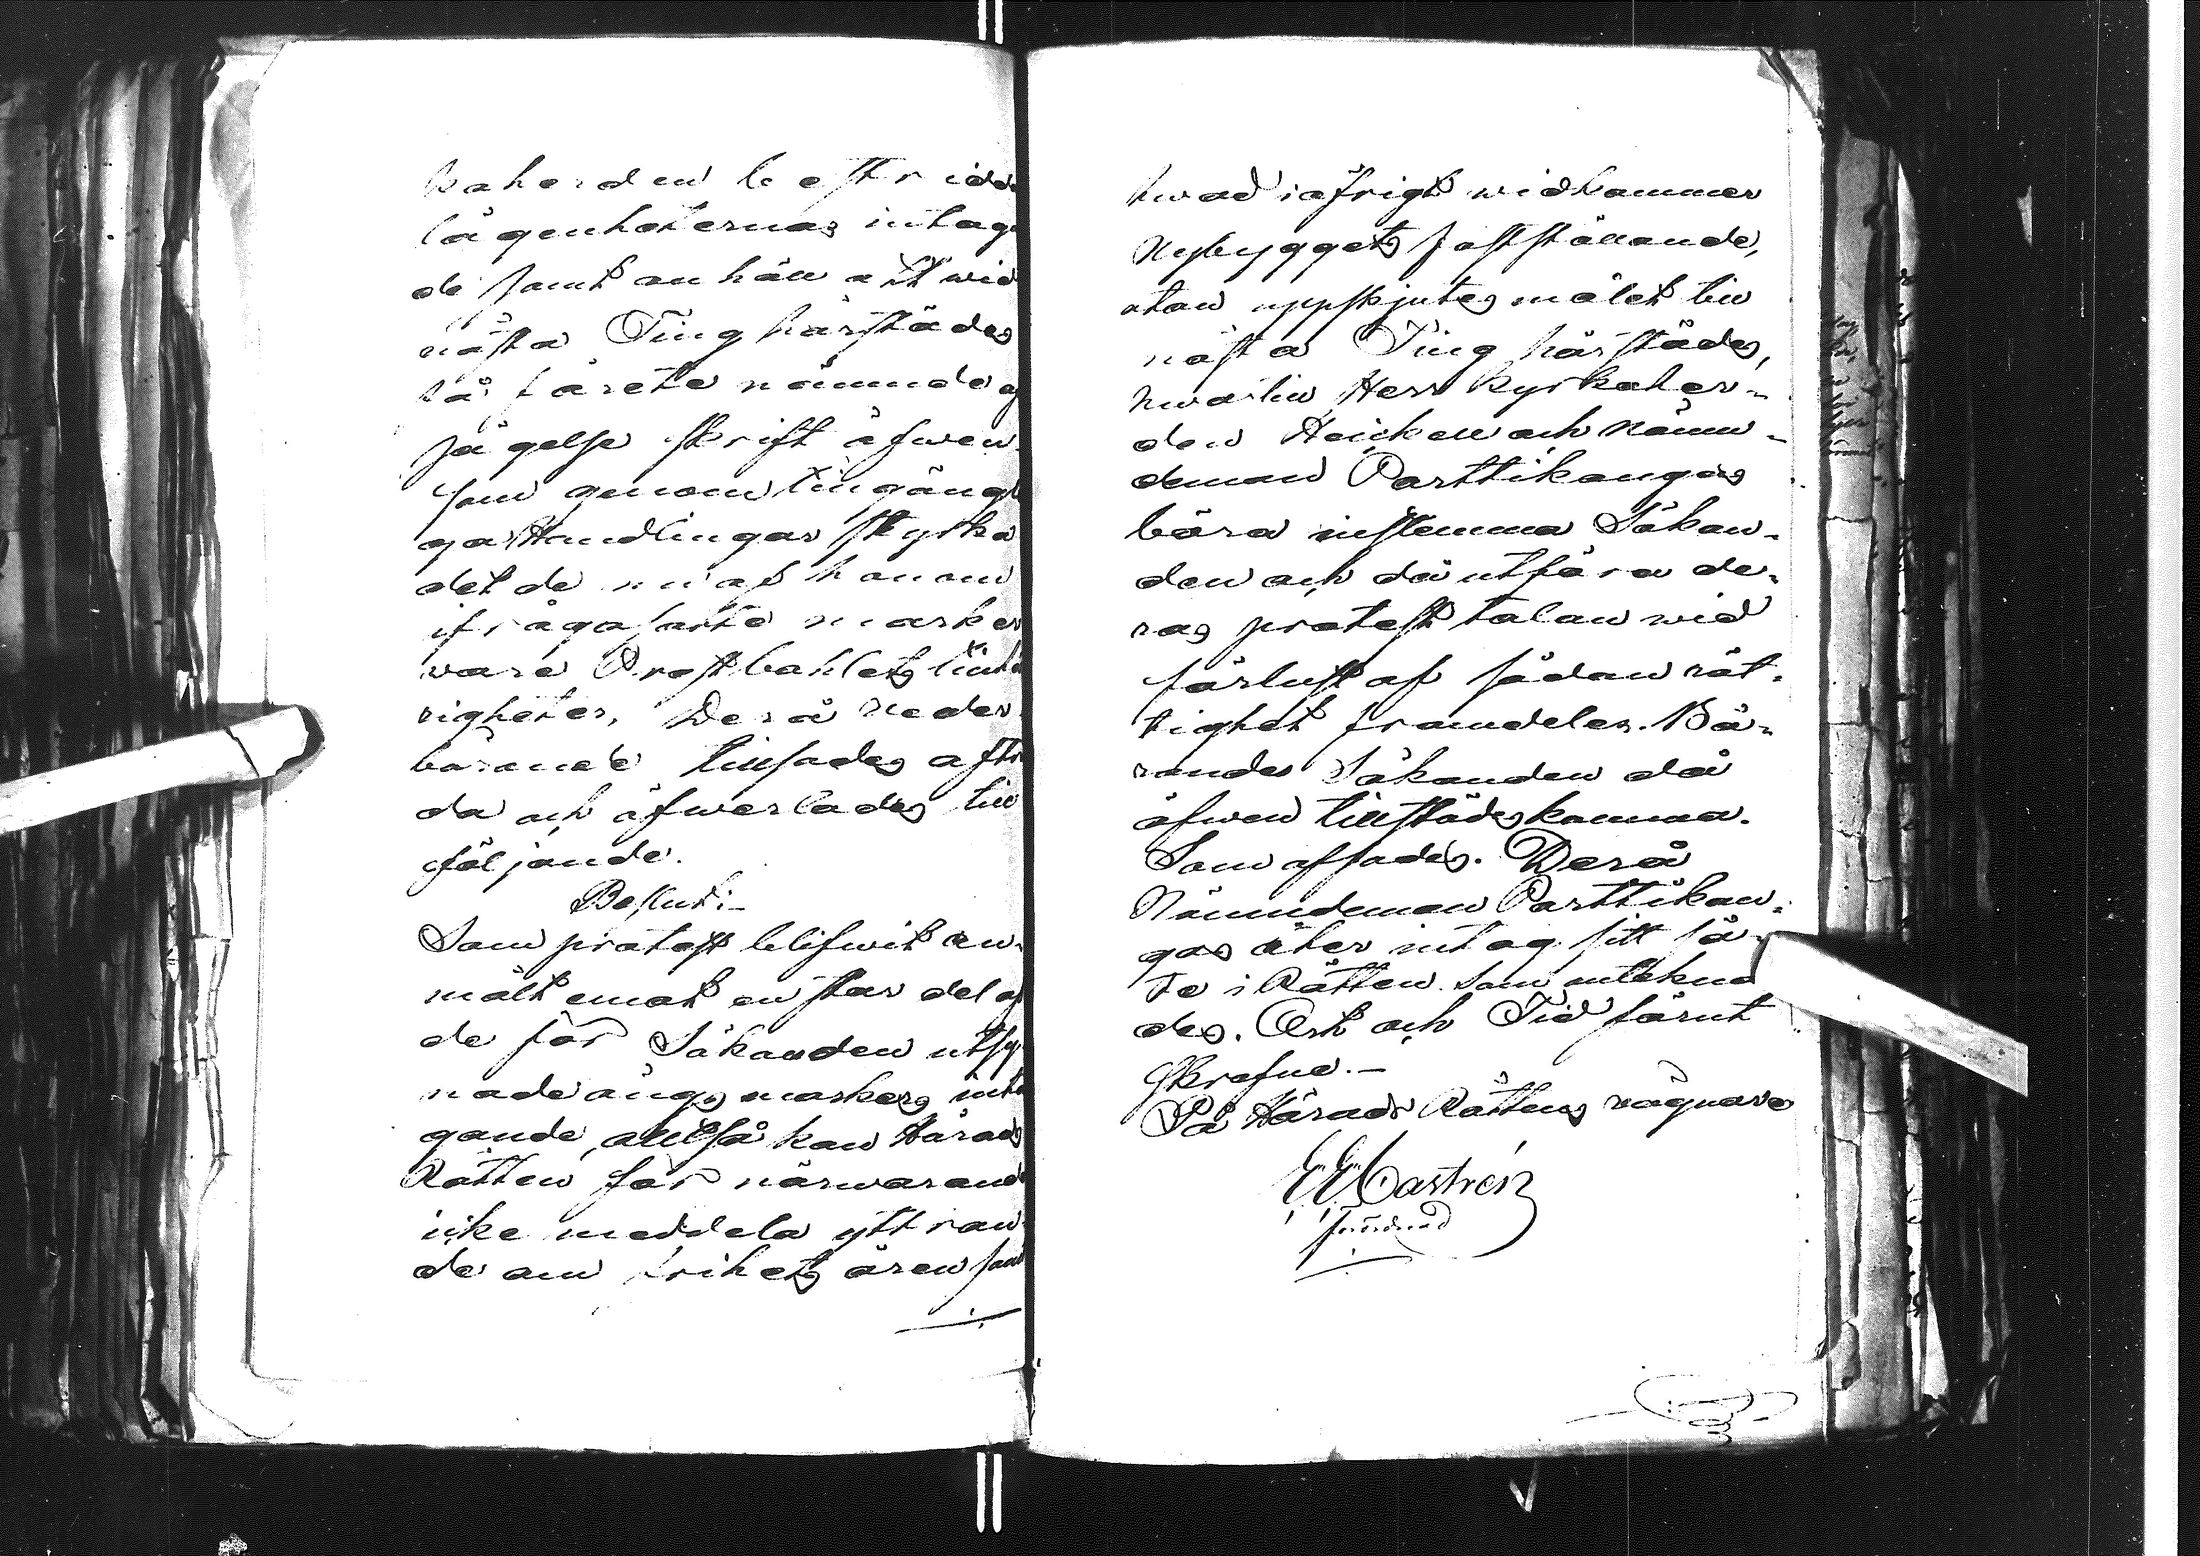 kaherden bestridde
lägenheternas intagan
de samt anhåll att wid
nästa Ting härstädes
få förete nämnde af
sägelse skrift äfwen
som genom tillgängli
ga Handlingar styrka
det de nu af honom
ifrågasatte marker
ware Prostbohlets tillhö
righeter. Derå Neder
börande tillsades afträ
da och öfwerlades till
följande.
Beslut:
Som protest blifwit an-
mält emot en stor del af
de för Sökanden utsy
nade ängs markers intä
gande, alltså kan Härads
Rätten för närwarande
icke meddela yttran
de om frihets åren samt
hwad i öfrigt widkommer
Nybyggets fastställande,
utan uppskjutes målet till
nästa Ting härstädes,
hwartill Herr Kyrkoher-
den Heickell och Nämn-
deman Parttikangas
böra instemma Sökan-
den och då utföra de-
ras protest talan wid
förlust af sådan rät-
tighet framdeles. Bö-
randes Sökanden då
äfwen tillstädeskomma.
Som afsades. Derå
Nämndeman Parttikan-
gas åter intog sitt sä-
te i Rätten. Som antekna
des. Ort och Tid förut
skrefne.
På Härads Rättens wägnar
E E Castrén